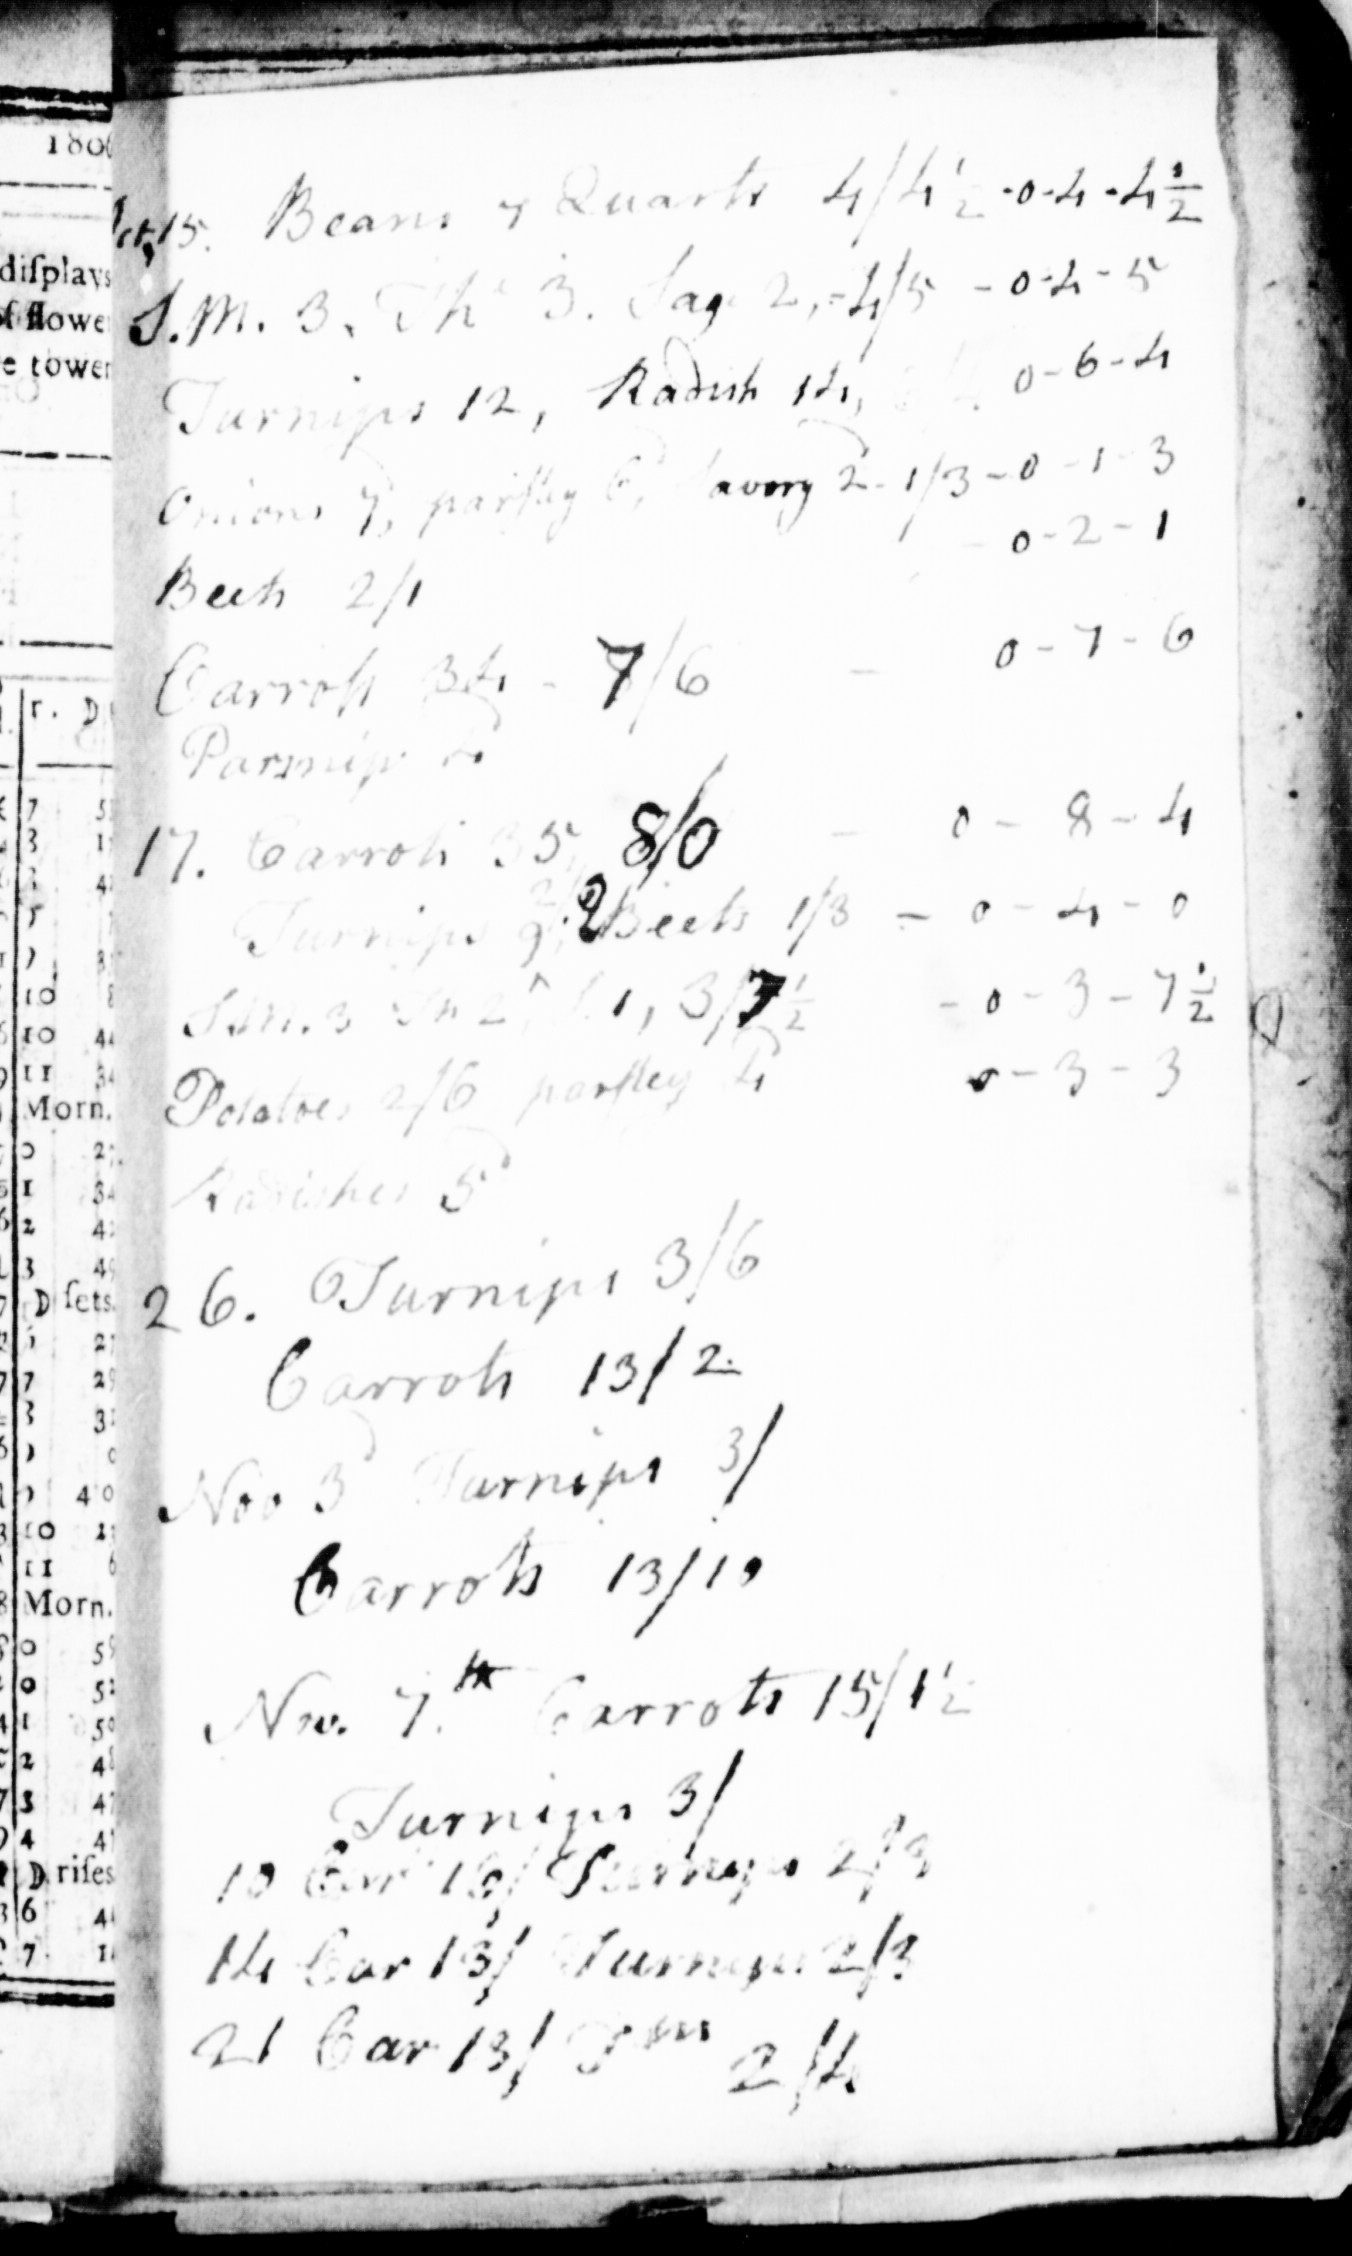 180
displays
of flowe
e tower
r. D
Morn.
D sets.
Morn.
D rises
Oct. 15. Beans 7 Quarts 4/4½ -0-4-4½
S.M. 3, Th 3. Sag 2, -4/5 -0-4-5
Turnips 12, Radish 14, 0-6-4
Onions 7d, parsley 6d, Savory 2d. 1/3-0-1-3
Beets 2/1 -0-2-1
Carrots 34 - 7/6 - 0-7-6
Parsnip 4d
17. Carrots 35, 8/0 - 0-8-4
Turnips 9, 2/9 Beets 1/3 - 0-4-0
S.M. 3 Th 2, S. 1, 3/7½ -0-3-7½
Potatoes 2/6 parsley 4d 0-3-3
Radishes 5d
26. Turnips 3/6
Carrots 13/2
Nov 3d Turnips 3/
Carrots 13/10
Nov. 7.th Carrots 15/1½
Turnips 3/
10 Car 16/ Turnips 2/3
14 Car 13/ Turnips 2/3
21 Car 13/ 2/4